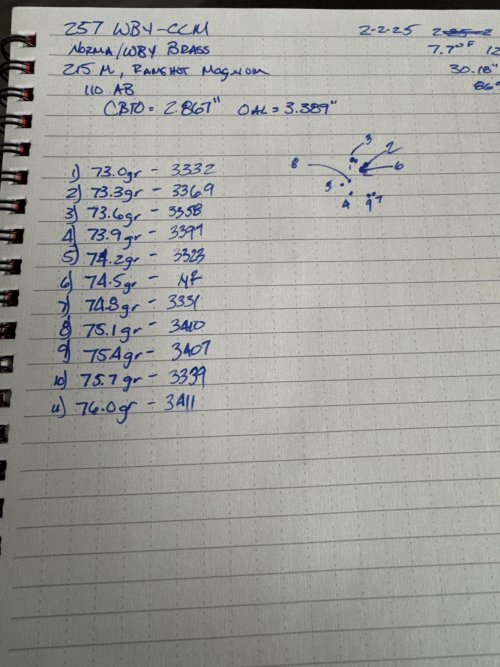 257 WBY-CCM 2-2-25
NORMA/WBY BRASS 7.7°F 12
215 M, RAMSHOT MAGNUM 30.18"
110 AB 86°
CBTO = 2.867" OAL = 3.389"
3
8 2
1) 73.0gr - 3332 1 6
2) 73.3gr - 3369 5
3) 73.6gr - 3358 4 9 7
4) 73.9gr - 3397
5) 74.2gr - 3323
6) 74.5gr -
7) 74.8gr - 3331
8) 75.1gr - 3410
9) 75.4gr - 3407
10) 75.7gr - 3339
11) 76.0gr - 3411